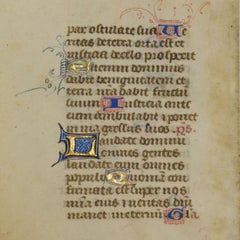 pax osculate sunt Ve
ritas de terra orta est et
iusticia de celo prospexit
Etenim dominus
dabit benignitatem et
terra nra dabit fructu
suum Iusticia ante
eum ambulabit et ponet
in via gressus suos ps
Laudate dominum
omnes gentes
laudate eum omnes
populi Quoniam con
firmata est super nos
mia eius et veritas dni
manet in eternum Gla